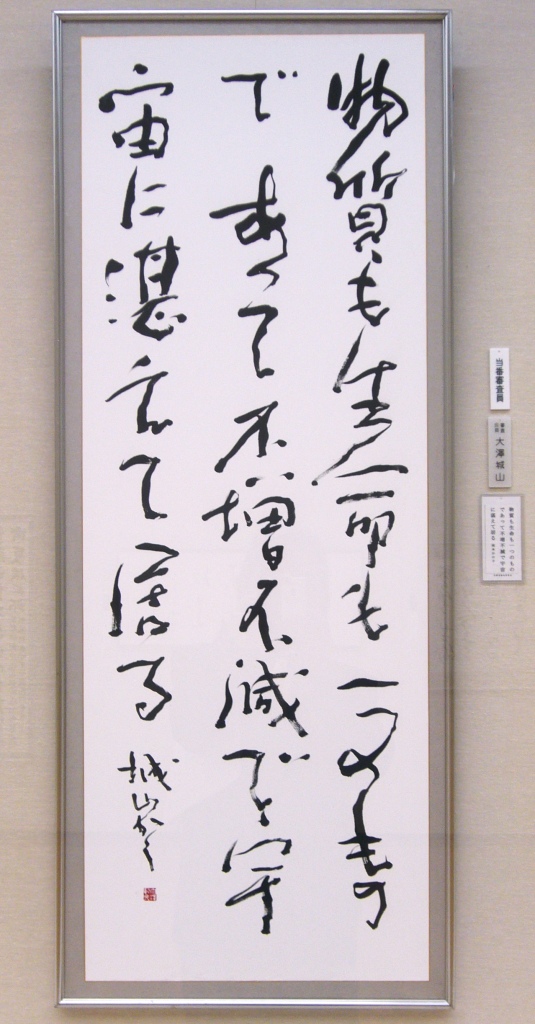 物質も生命も一つのもの
であって不増不減で宇
宙に湛えて居る
城山かく
当番審査員
大澤城山
物質も生命も一つのもの
であって不増不減で宇宙
に湛えて居る